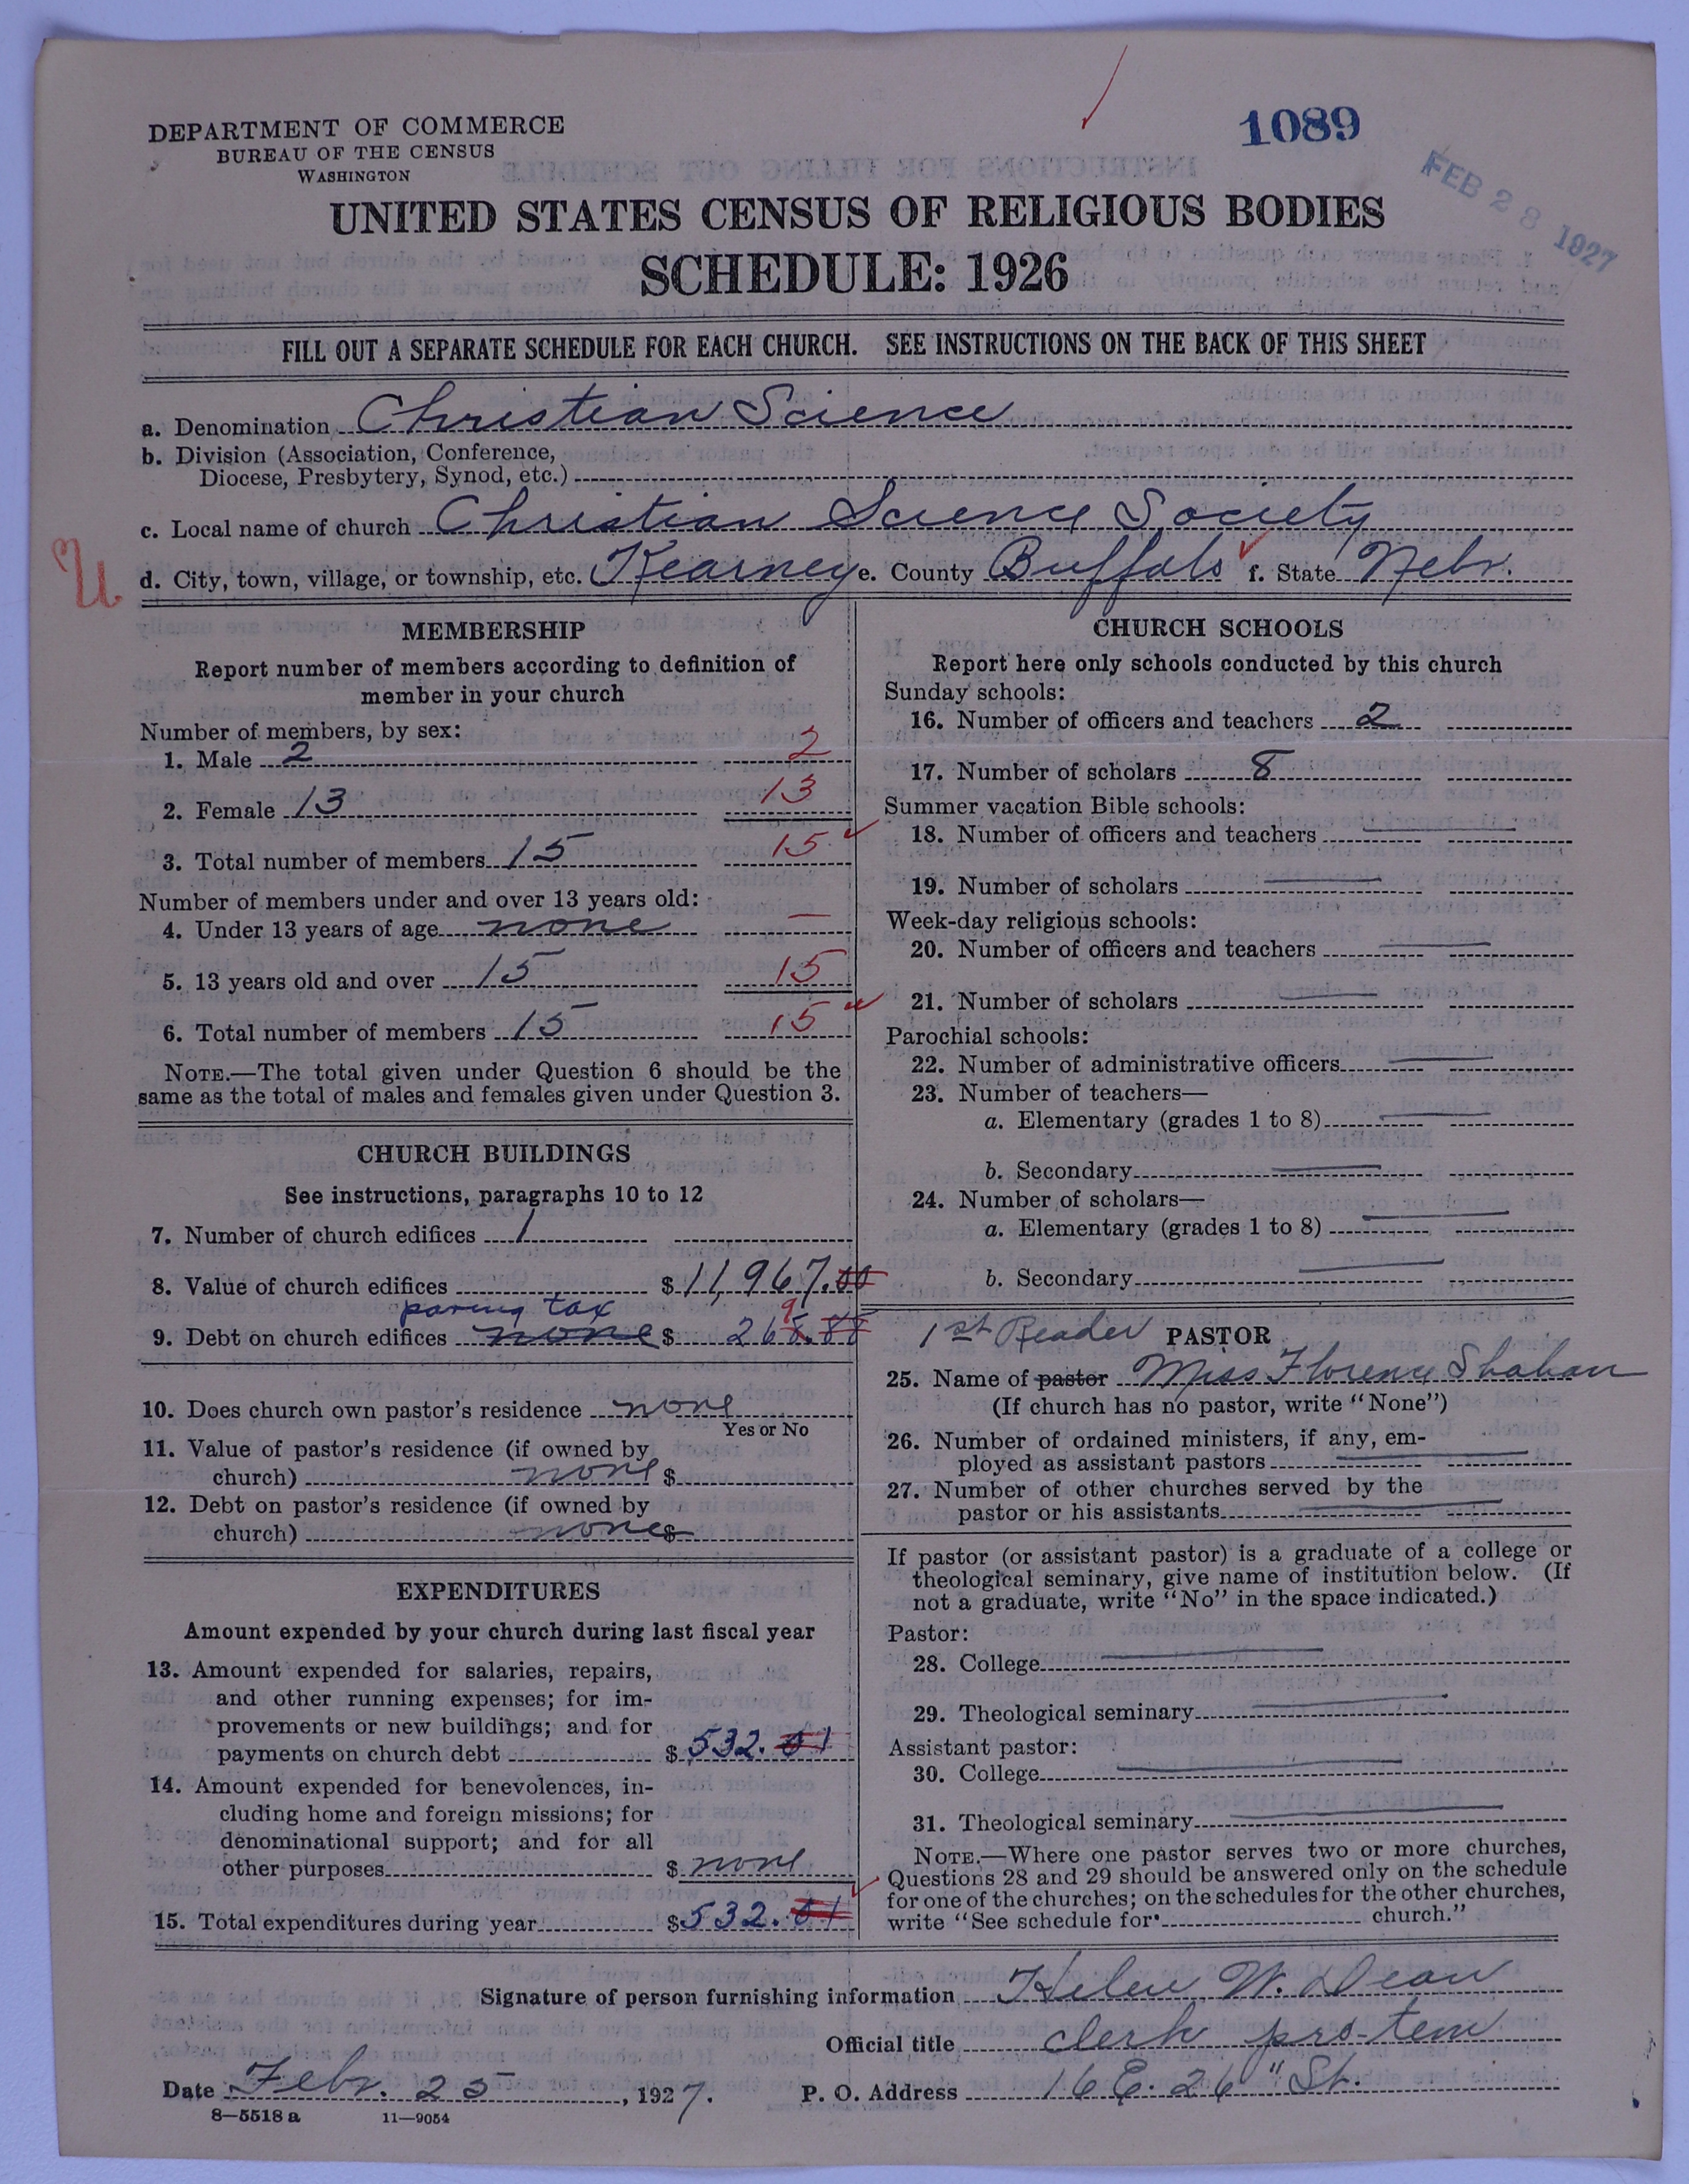 1089
FEB 28 1927
DEPARTMENT OF COMMERCE
BUREAU OF THE CENSUS
WASHINGTON
UNITED STATES CENSUS OF RELIGIOUS BODIES
SCHEDULE: 1926
FILL OUT A SEPARATE SCHEDULE FOR EACH CHURCH. SEE INSTRUCTIONS ON THE BACK OF THIS SHEET
a. Denomination Christian Science
b. Division (Association, Conference,
Diocese, Presbytery, Synod, etc.)
c. Local name of church Christian Science Society
d. City, town, village, or township, etc. Kearney e. County Buffalo f. State Nebr.
MEMBERSHIP
Report number of members according to definition of
member in your church
Number of members, by sex:
1. Male 2 2
2. Female 13 13
3. Total number of members 15 15
Number of members under and over 13 years old:
4. Under 13 years of age none —
5. 13 years old and over 15 15
6. Total number of members 15 15
NOTE.—The total given under Question 6 should be the
same as the total of males and females given under Question 3.
CHURCH BUILDINGS
See instructions, paragraphs 10 to 12
7. Number of church edifices 1
8. Value of church edifices $11,967.00
paving tax
9. Debt on church edifices none $ 268.88
9
10. Does church own pastor's residence none
Yes or No
11. Value of pastor's residence (if owned by
church) none $
12. Debt on pastor's residence (if owned by
church) none $
EXPENDITURES
Amount expended by your church during last fiscal year
13. Amount expended for salaries, repairs,
and other running expenses; for im-
provements or new buildings; and for
payments on church debt $ 532.01
14. Amount expended for benevolences, in-
cluding home and foreign missions; for
denominational support; and for all
other purposes $ none
15. Total expenditures during year $532.01
CHURCH SCHOOLS
Report here only schools conducted by this church
Sunday schools:
16. Number of officers and teachers 2
17. Number of scholars 8
Summer vacation Bible schools:
18. Number of officers and teachers
19. Number of scholars
Week-day religious schools:
20. Number of officers and teachers
21. Number of scholars
Parochial schools:
22. Number of administrative officers
23. Number of teachers—
a. Elementary (grades 1 to 8)
b. Secondary
24. Number of scholars—
a. Elementary (grades 1 to 8)
b. Secondary
1st Reader PASTOR
25. Name of pastor Miss Florence Shahan
(If church has no pastor, write "None")
26. Number of ordained ministers, if any, em-
ployed as assistant pastors
27. Number of other churches served by the
pastor or his assistants
If pastor (or assistant pastor) is a graduate of a college or
theological seminary, give name of institution below. (If
not a graduate, write "No" in the space indicated.)
Pastor:
28. College
29. Theological seminary
Assistant pastor:
30. College
31. Theological seminary
NOTE.—Where one pastor serves two or more churches,
Questions 28 and 29 should be answered only on the schedule
for one of the churches; on the schedules for the other churches,
write "See schedule for church."
Signature of person furnishing information Helen W. Dean
Official title clerk pro-tem
Date Febr. 25, 1927. P. O. Address 16 E. 26" St.
8—5518 a 11—9054